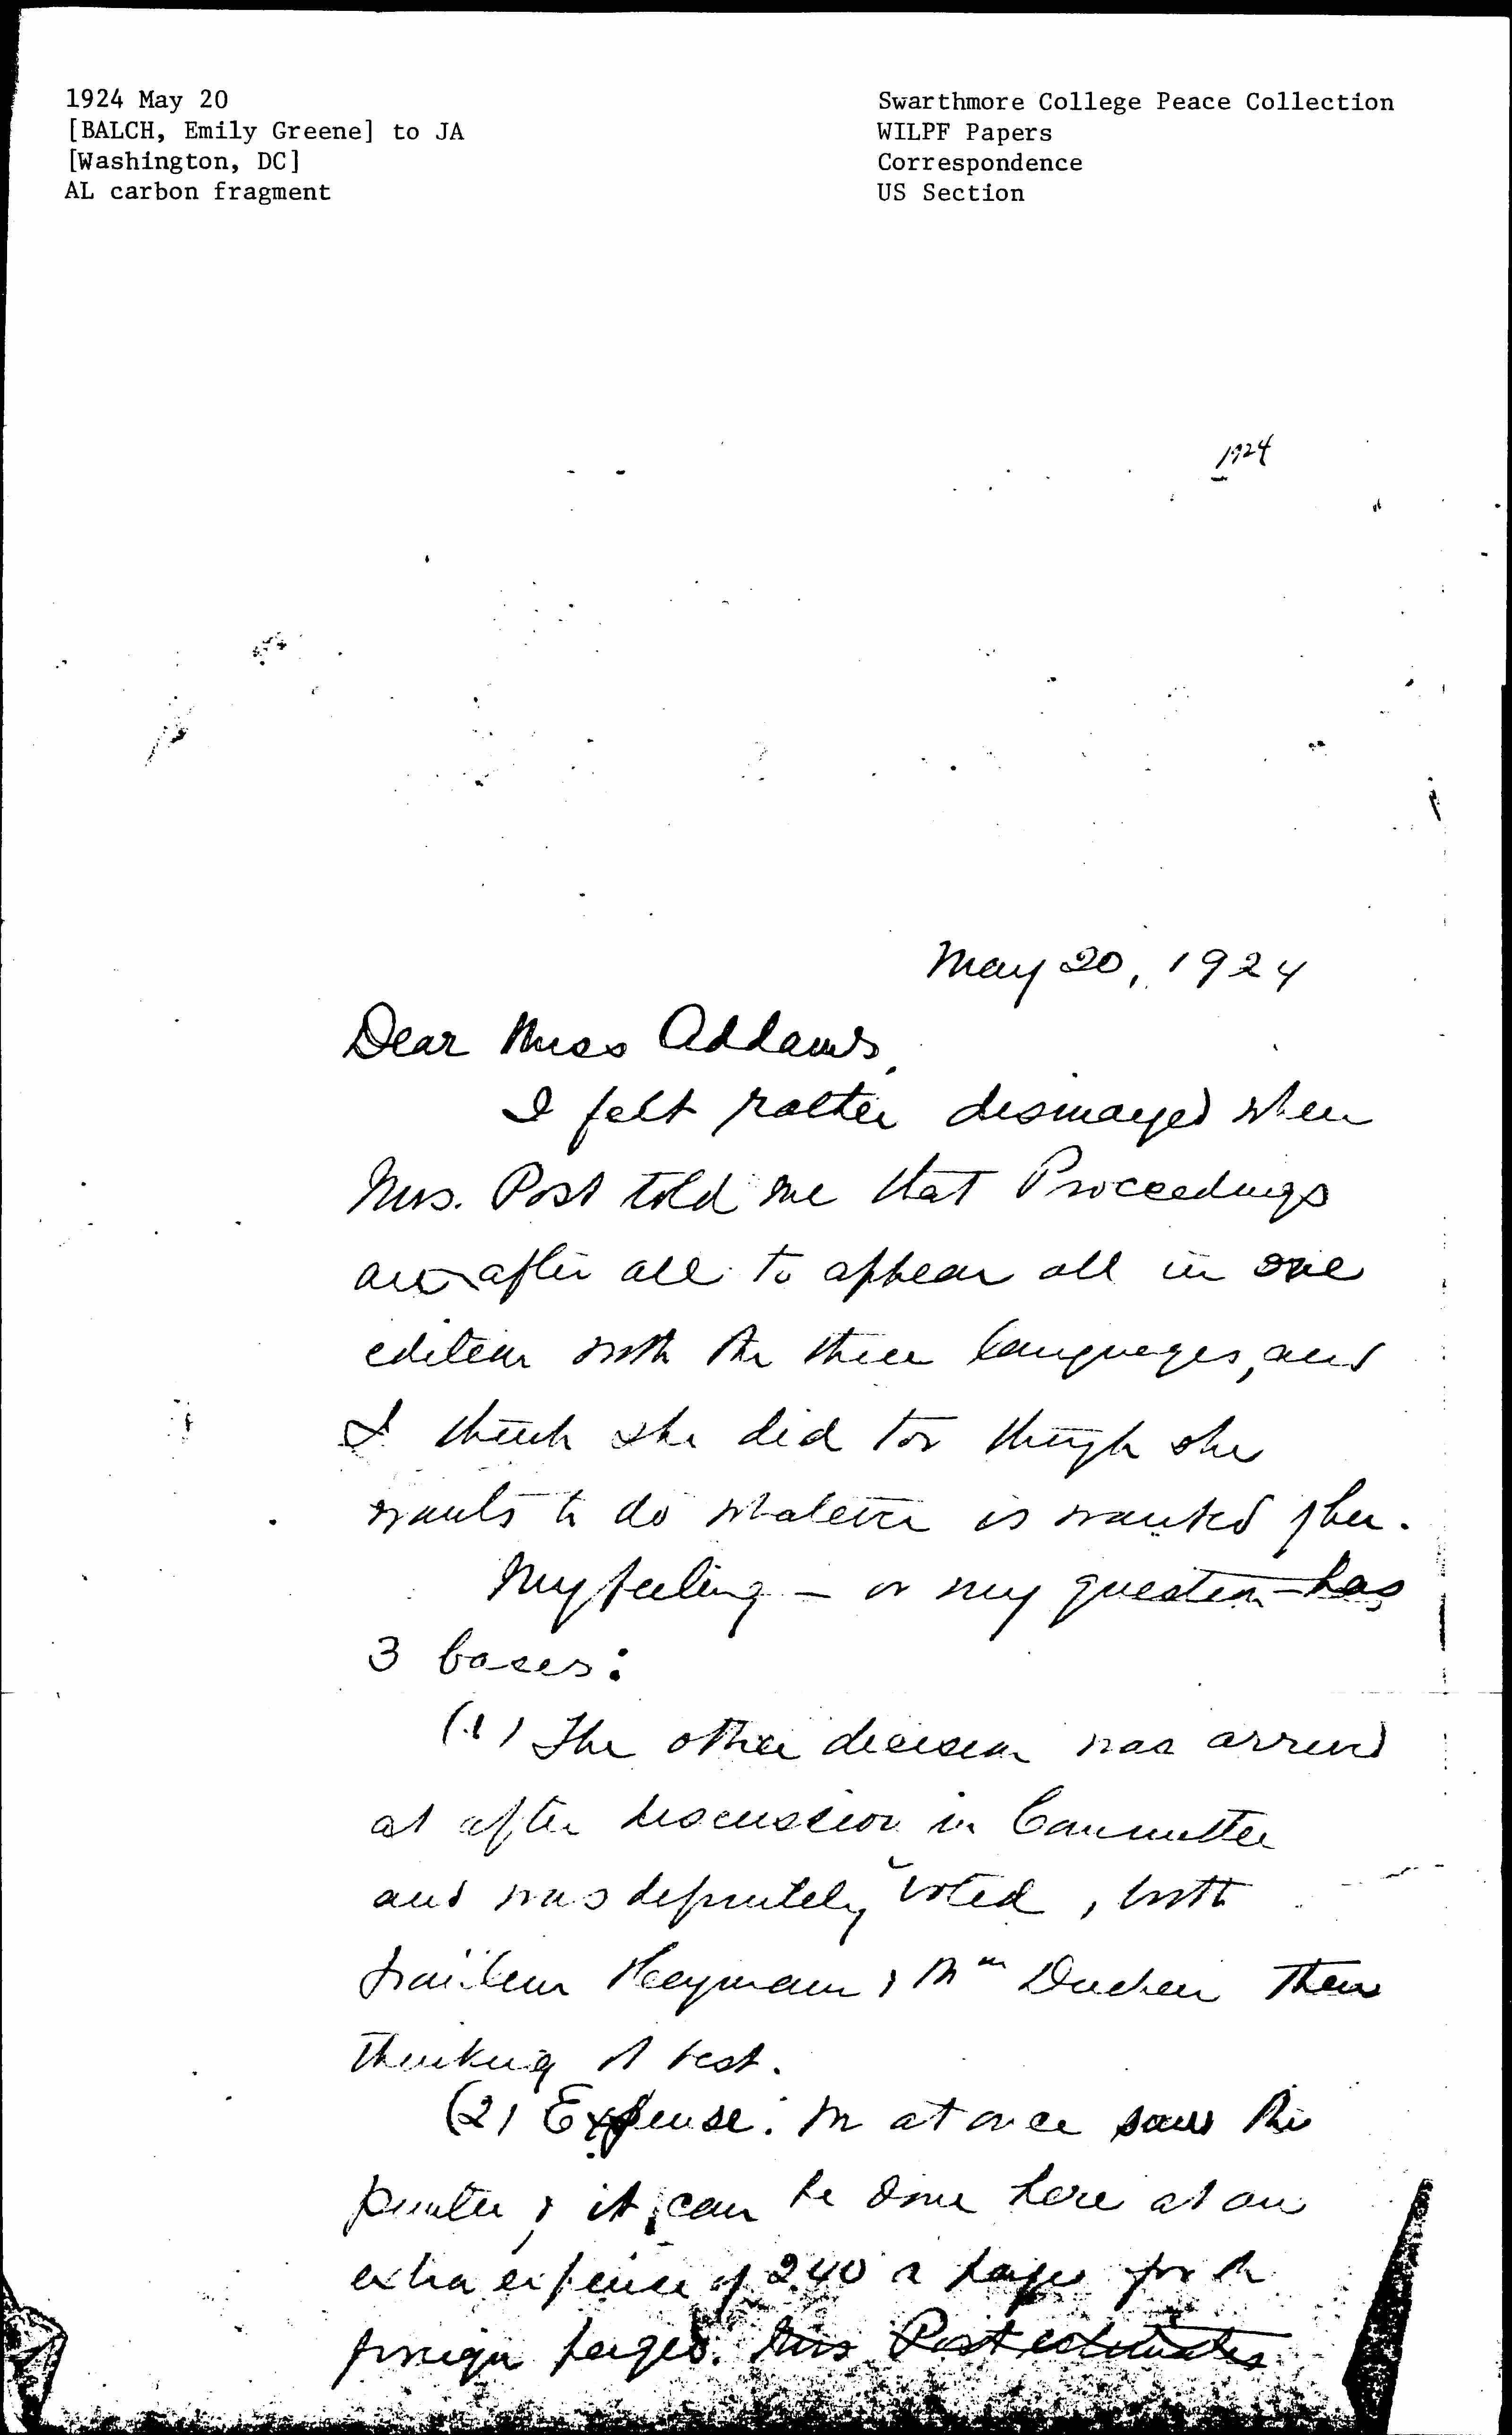 1924 May 20
[BALCH, Emily Greene] to JA
[Washington, DC]
AL carbon fragment
Swarthmore College Peace Collection
WILPF Papers
Correspondence
US Section
1924
May 20, 1924
Dear Miss Addams,
I felt rather dismayed when
Mrs. Post told me that Proceedings
are after all to appear all in one
edition with the three languages, and
I think she did too though she
wants to do whatever is wanted of her.
My feeling – or my question – has
3 bases:
(1) The other decision was arrived
at after discussion in Committee
and was definitely voted, both
Fraülein Heymann & Mme Duchene then
thinking it best.
(2) Expense. at once saw the
printer & it can be done here at an
extra expense of 2.40 a page for the
foreign pages. Mrs Post estimates